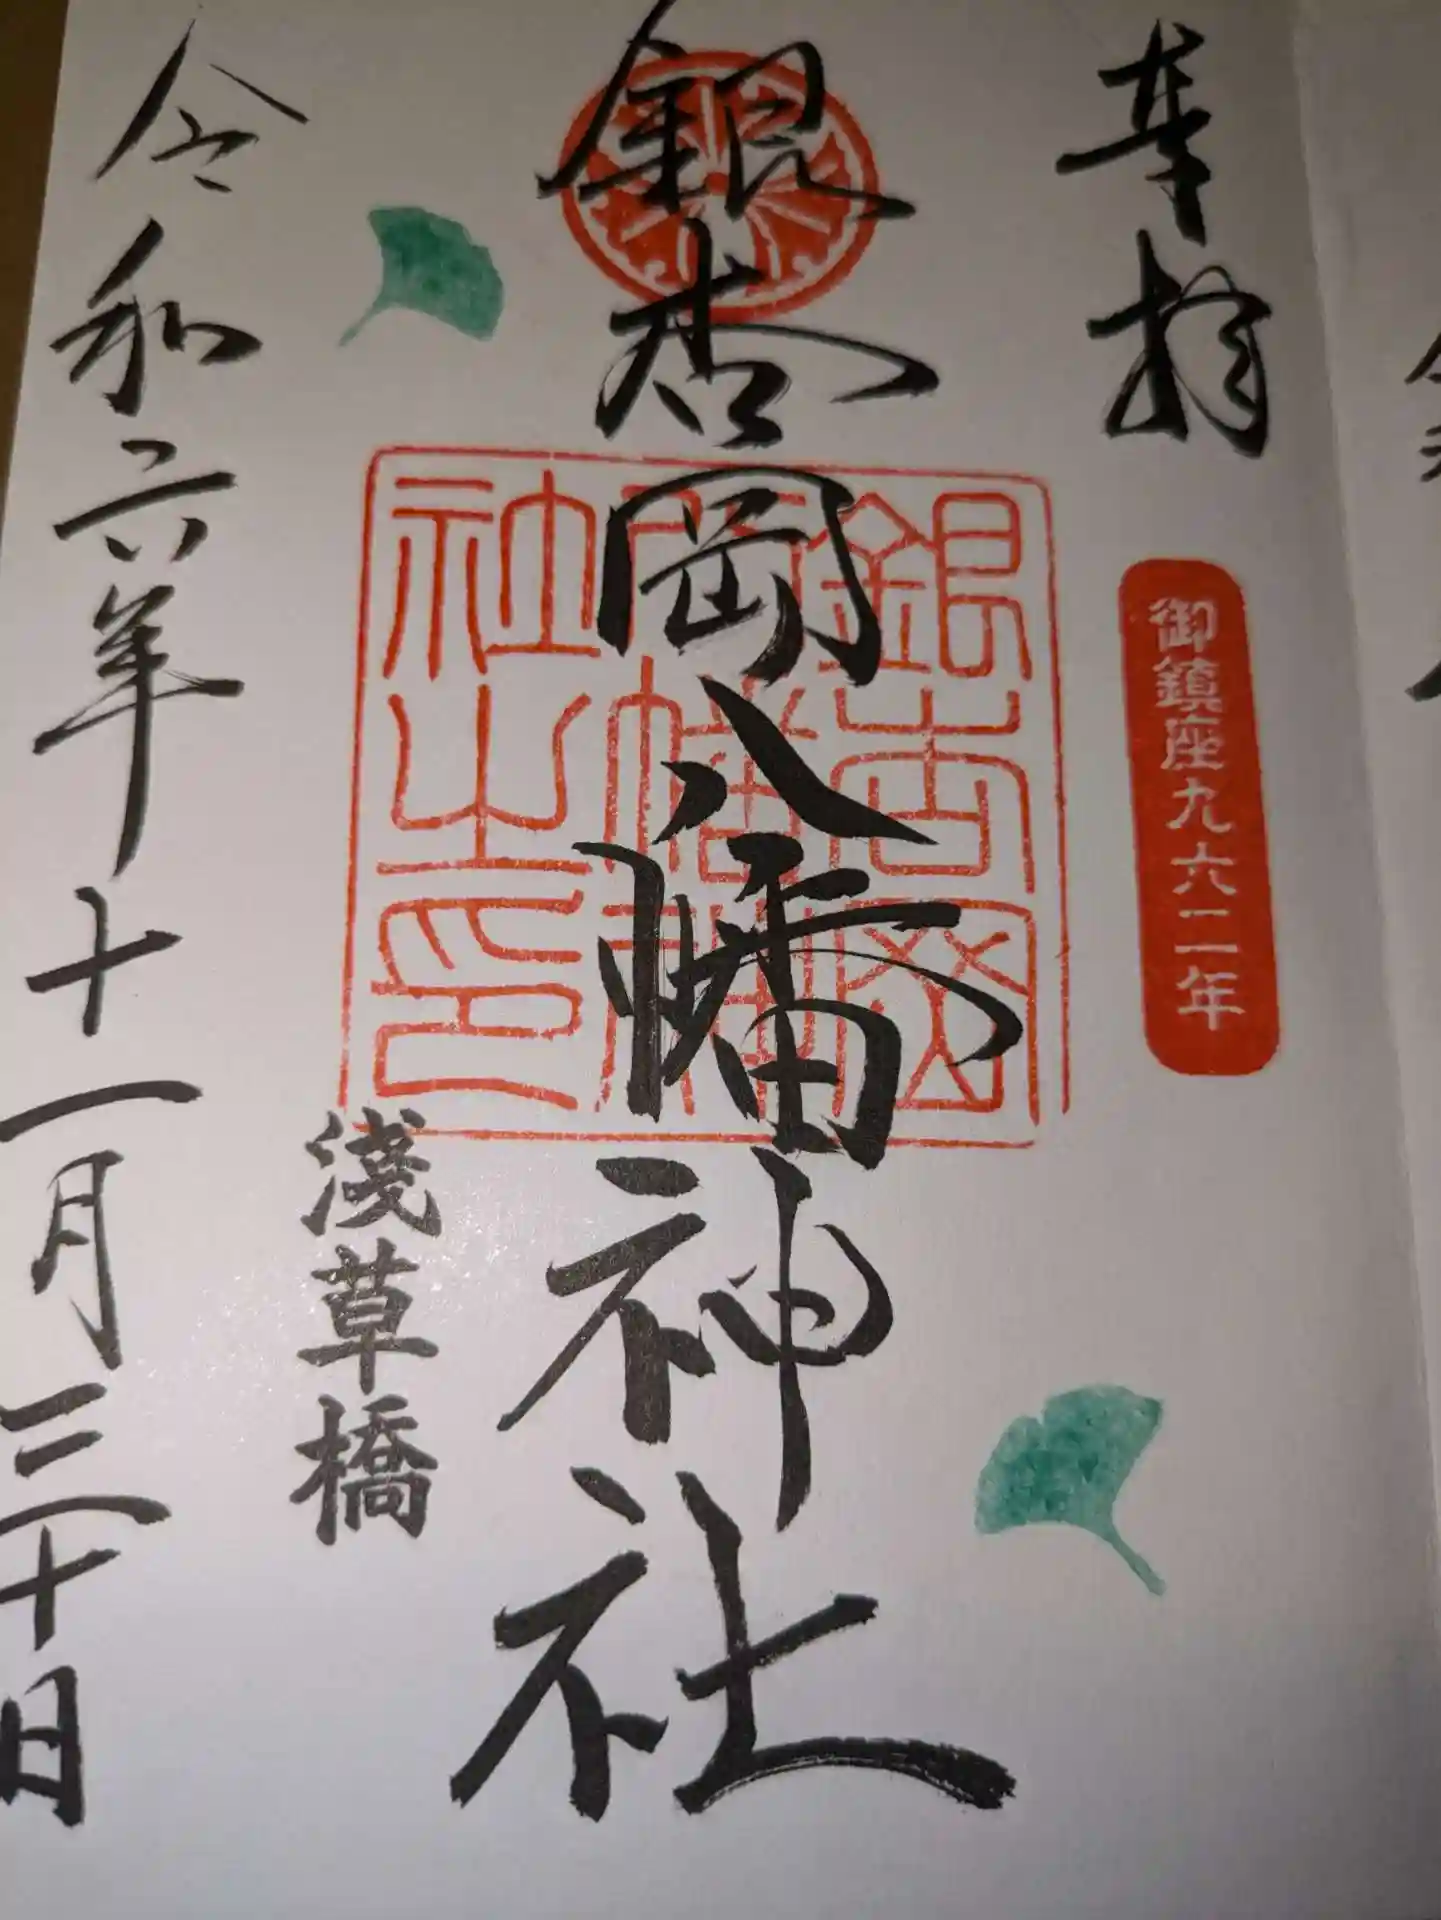 奉拝
御鎮座九六二年
銀杏岡八幡神社
銀杏岡
八幡神
社之印
淺草橋
令和六年十一月三十日